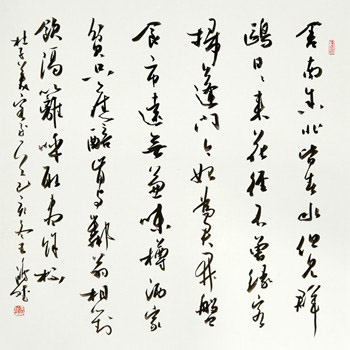 舍南舍北皆春水但見群
鷗日日来花徑不曾緣客
掃蓬門今始為君開盤
飧市遠無兼味樽酒家
貧只舊醅肯與鄰翁相對
飲隔籬呼取盡餘杯
杜子美客至己亥冬